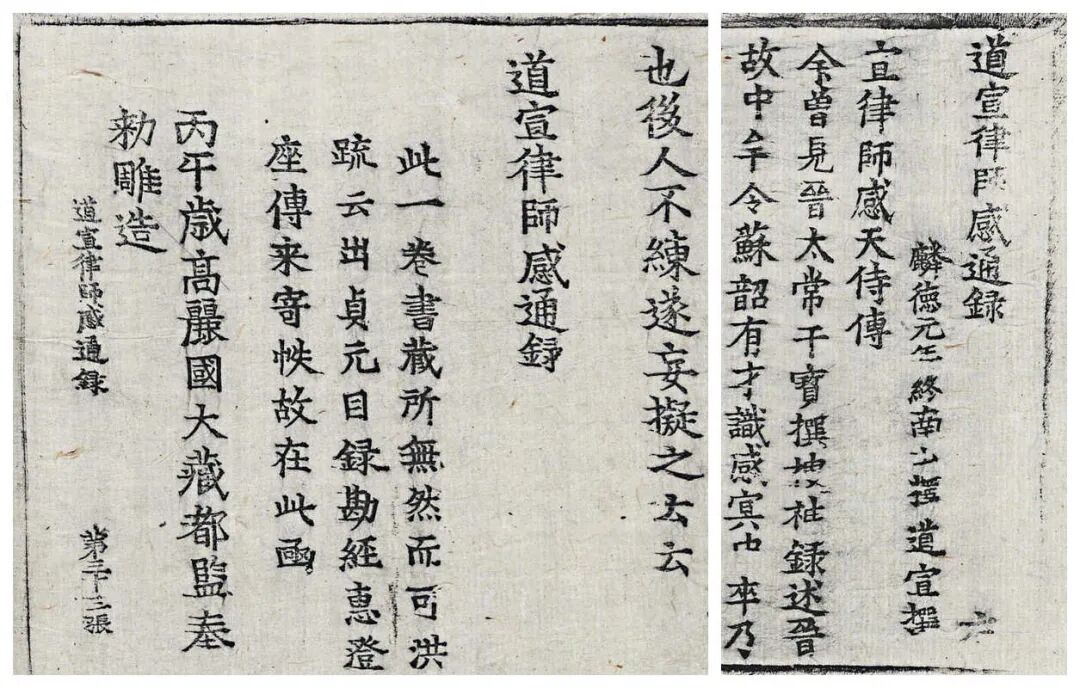 道宣律師感通録 六
麟德元年終南山釋道宣撰
宣律師感天侍傳
余曾見晉太常干寶撰搜神録述晉
故中牟令蘇韶有才識感冥中卒乃
也後人不練遂妄擬之云云
道宣律師感通録
此一卷書藏所無然而可洪
䟽云出貞元目録勘經惠澄
座傳来寄帙故在此函
丙午歳高麗國大藏都監奉
勑雕造
道宣律師感通録 第二十三張